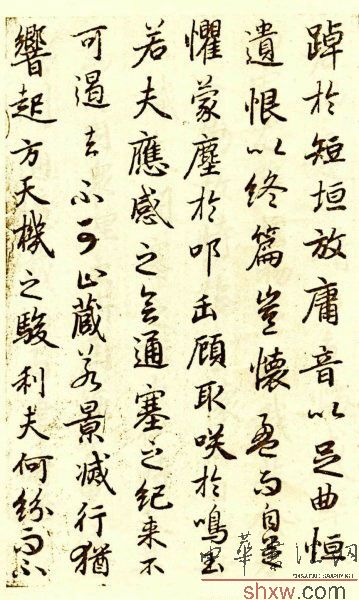 踔於短垣放庸音以足曲恒
遺恨以終篇豈懷盈而自足
懼蒙塵於叩缶顧取咲於鳴玉
若夫應感之會通塞之紀来不
可遏去不可止藏若景滅行猶
響起方天機之駿利夫何紛而不
shxw.com